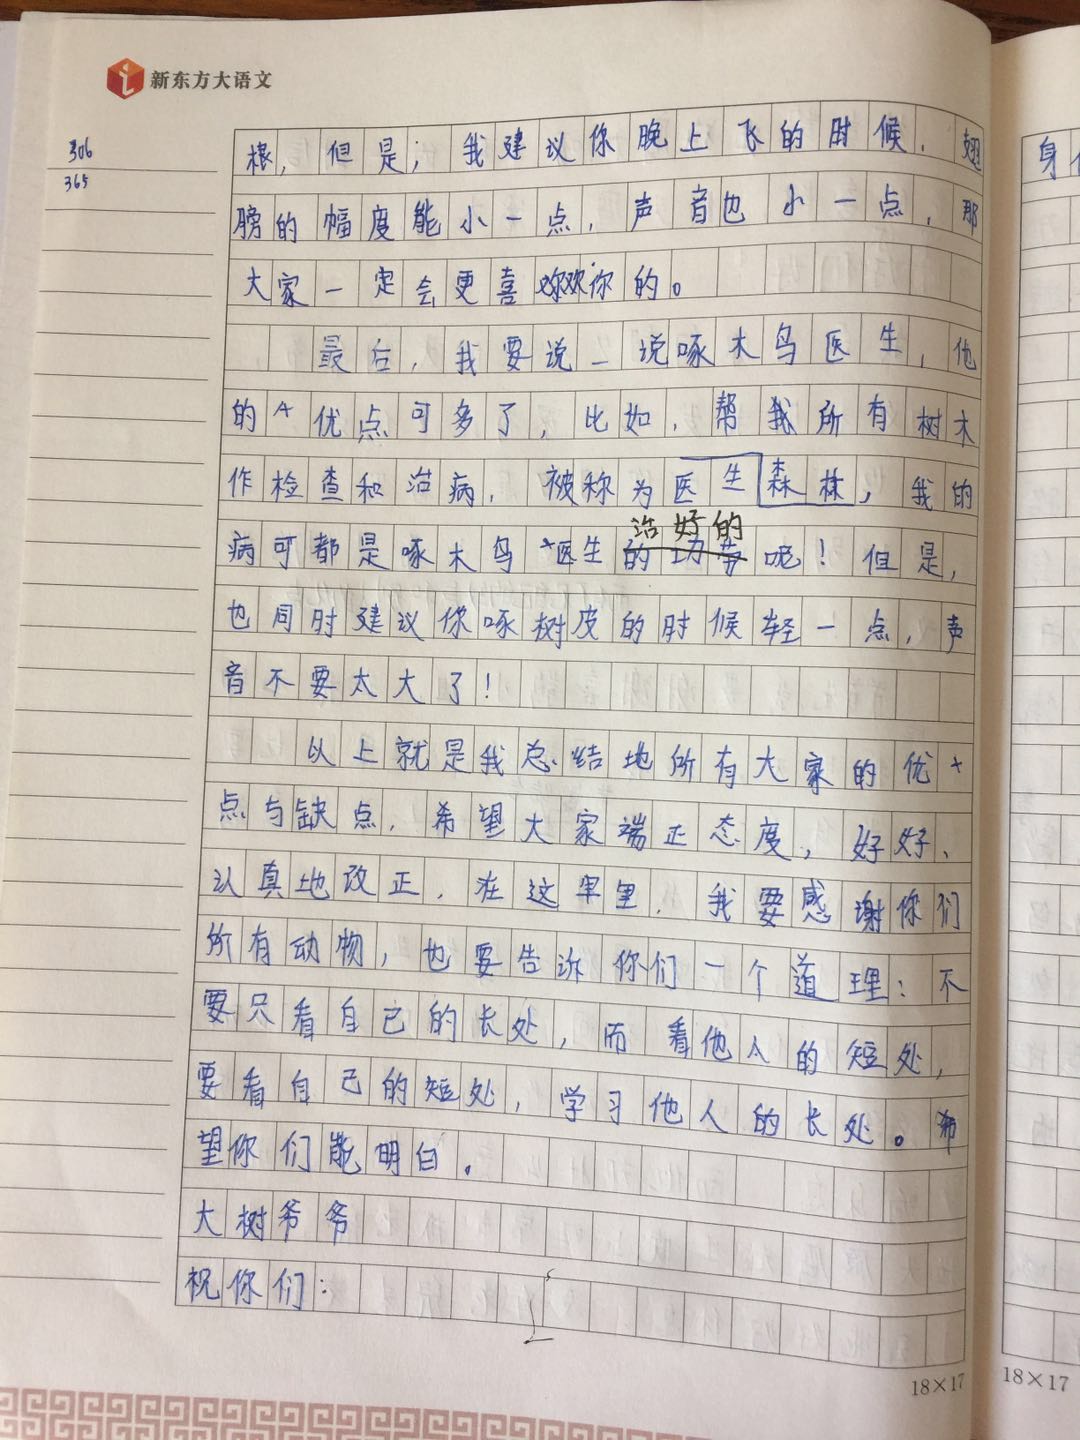 新东方大语文
306
365
根，但是；我建议你晚上飞的时候，翅
膀的幅度能小一点，声音也小一点，那
大家一定会更喜欢你的。
最后，我要说一说啄木鸟医生，他
的优点可多了，比如，帮我所有树木
作检查和治病，被称为医生森林，我的
治好的
病可都是啄木鸟医生的功劳呢！但是，
也同时建议你啄树皮的时候轻一点，声
音不要太大了！
以上就是我总结地所有大家的优
点与缺点，希望大家端正态度，好好、
认真地改正，在这里，我要感谢你们
所有动物，也要告诉你们一个道理：不
要只看自己的长处，而看他人的短处，
要看自己的短处，学习他人的长处。希
望你们能明白。
大树爷爷
祝你们：
18×17
18×17